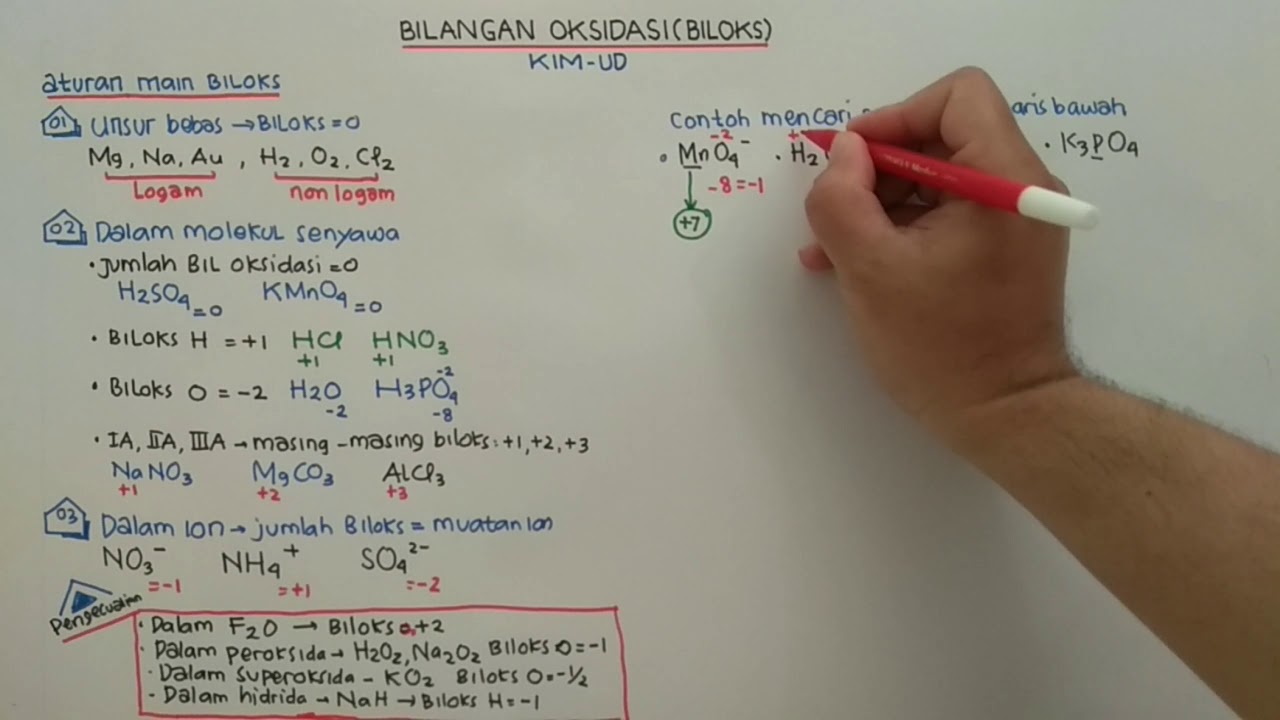 BILANGAN OKSIDASI(BILOKS)
KIM-UD
aturan main BILOKS
01 Unsur bebas → BILOKS = 0
Mg, Na, Au , H2, O2, Cl2
Logam non logam
02 Dalam molekul senyawa
• Jumlah BIL Oksidasi = 0
H2SO4 = 0 KMnO4 = 0
• BILOKS H = +1 HCl HNO3
+1 +1
• BILOKS O = -2 H2O H3PO4
-2
-2 -8
• IA, IIA, IIIA → masing-masing biloks: +1, +2, +3
NaNO3 MgCO3 AlCl3
+1 +2 +3
03 Dalam Ion → jumlah Biloks = muatan Ion
NO3⁻ NH4⁺ SO4²⁻
= -1 = +1 = -2
Pengecualian
• Dalam F2O → BILOKS O, +2
• Dalam peroksida → H2O2, Na2O2 BILOKS O = -1
• Dalam Superoksida - KO2 BILOKS O = -1/2
• Dalam hidrida → NaH → BILOKS H = -1
Contoh mencari aris bawah
-2 +
• MnO4⁻ • H2 • K3PO4
-8 = -1
+7